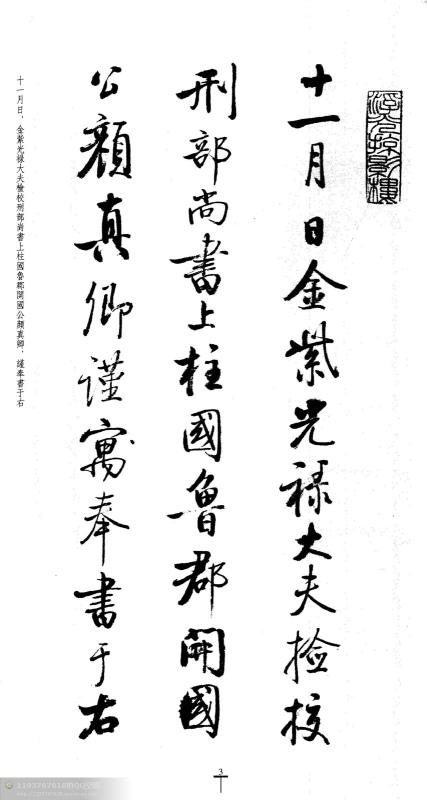 十一月日金紫光禄大夫撿挍
刑部尚書上柱國魯郡開國
公顏真卿謹寓奉書于右
十一月日，金紫光祿大夫檢校刑部尚書上柱國魯郡開國公顏真卿，謹奉書于右
3